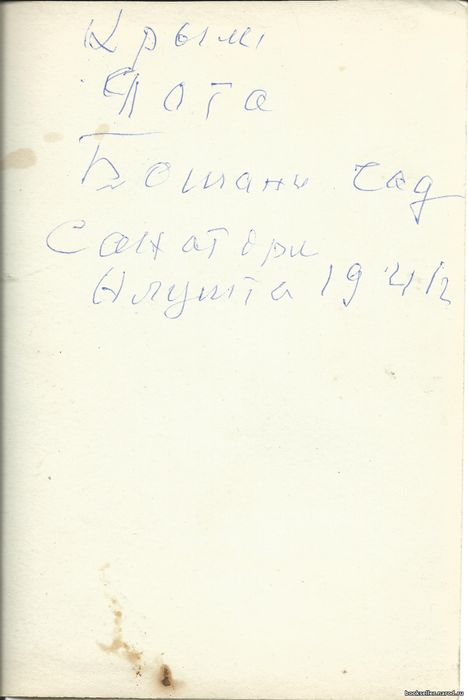 Крым
Ялта
Ботани сад
Санатори
Алушта 19
bookseller.narod.ru